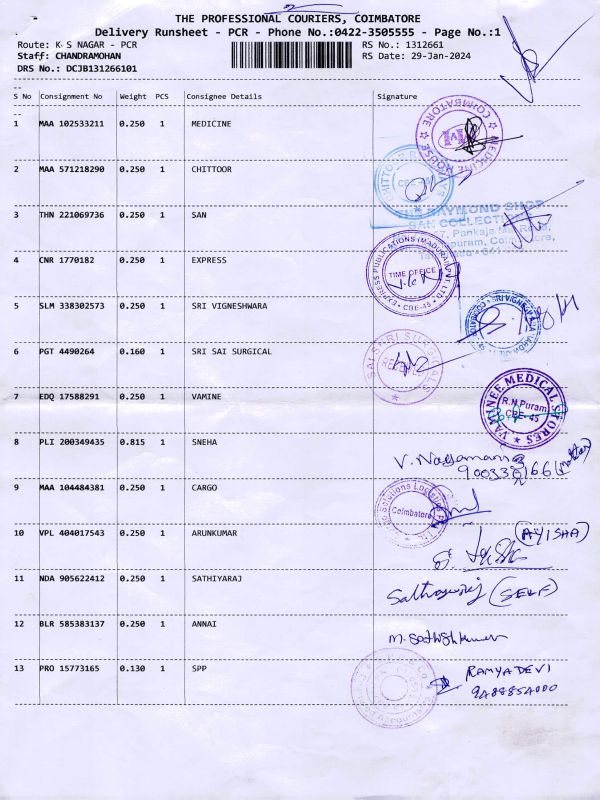 THE PROFESSIONAL COURIERS, COIMBATORE
Delivery Runsheet - PCR - Phone No.:0422-3505555 - Page No.:1
Route: K S NAGAR - PCR
RS No.: 1312661
Staff: CHANDRAMOHAN
RS Date: 29-Jan-2024
DRS No.: DCJB131266101
S No Consignment No Weight PCS Consignee Details Signature
1 MAA 102533211 0.250 1 MEDICINE
COIMBATORE MEDICINE HOUSE
2 MAA 571218290 0.250 1 CHITTOOR
CBE-45
3 THN 221069736 0.250 1 SAN
RAYMOND SHOP
SAN COLLECTION
Pankaja Mill Road,
4 CNR 1770182 0.250 1 EXPRESS
EXPRESS PUBLICATIONS (MADURAI) PVT LTD CBE-45
TIME OFFICE
5 SLM 338302573 0.250 1 SRI VIGNESHWARA
6 PGT 4490264 0.160 1 SRI SAI SURGICAL
SAI SURGICALS
7 EDQ 17588291 0.250 1 VAMINE
MEDICAL STORES
R.N.Puram
CBE-45
8 PLI 200349435 0.815 1 SNEHA
9 MAA 104484381 0.250 1 CARGO
Solutions Logistics
Coimbatore
10 VPL 404017543 0.250 1 ARUNKUMAR
(AYISHA)
11 NDA 905622412 0.250 1 SATHIYARAJ
(SELF)
12 BLR 585383137 0.250 1 ANNAI
M. Sathishkumar
13 PRO 15773165 0.130 1 SPP
RAMYADEVI